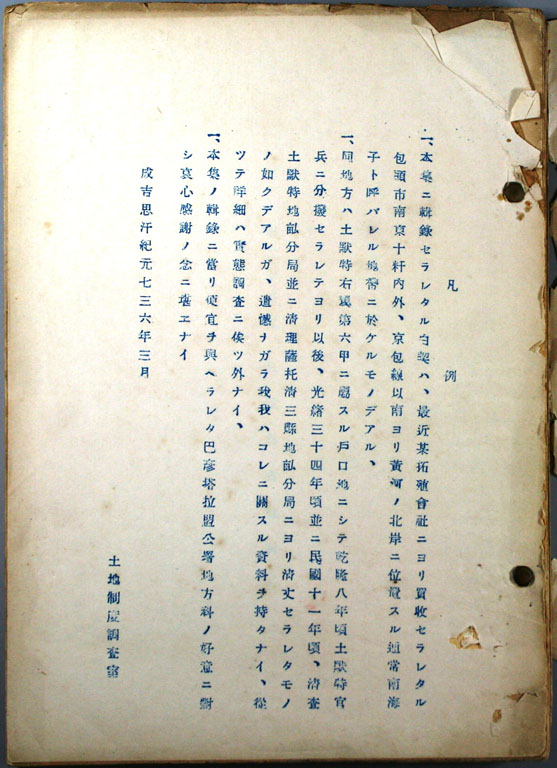 凡例
一、本集ニ輯錄セラレタル白契ハ、最近某拓殖會社ニヨリ買收セラレタル
包頭市南京十粁内外、京包線以南ヨリ黃河ノ北岸ニ位置スル通常南海
子ト呼バレル地帶ニ於ケルモノデアル、
一、同地方ハ土默特右翼第六甲ニ屬スル戶口地ニシテ乾隆八年頃土默特官
兵ニ分撥セラレテヨリ以後、光緖三十四年頃並ニ民國十一年頃、淸査
土默特地畝分局並ニ淸理薩托淸三縣地畝分局ニヨリ淸丈セラレタモノ
ノ如クデアルガ、遺憾ナガラ我我ハコレニ關スル資料ヲ持タナイ、從
ツテ詳細ハ實態調査ニ俟ツ外ナイ、
一、本集ノ輯錄ニ當リ便宜ヲ與ヘラレタ巴彥塔拉盟公署地方科ノ好意ニ對
シ衷心感謝ノ念ニ堪エナイ
成吉思汗紀元七三六年三月
土地制度調査室